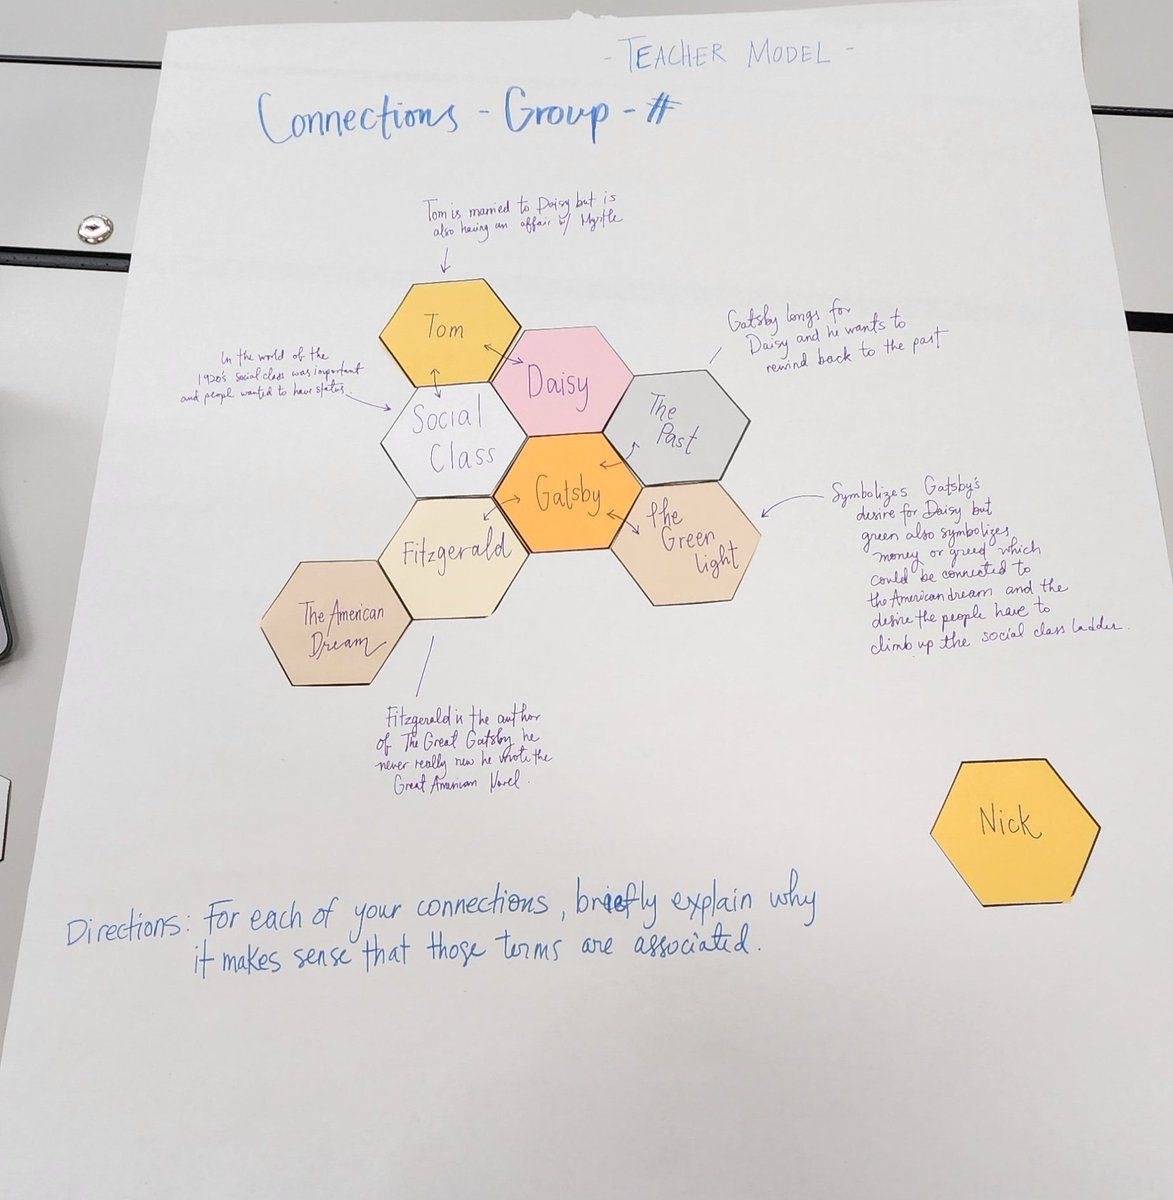 - TEACHER MODEL -
Connections - Group - #
Tom is married to Daisy but is
also having an affair w/ Myrtle
Tom
Gatsby longs for
Daisy and he wants to
rewind back to the past
In the world of the
1920's social class was important
and people wanted to have status.
Daisy
Social
Class
The
Past
Gatsby
Symbolizes Gatsby's
desire for Daisy but
green also symbolizes
money or greed which
could be connected to
the American dream and the
desire the people have to
climb up the social class ladder.
The
Green
light
Fitzgerald
The American
Dream
Fitzgerald is the author
of The Great Gatsby, he
never really new he wrote the
Great American Novel.
Nick
Directions: For each of your connections, briefly explain why
it makes sense that those terms are associated.